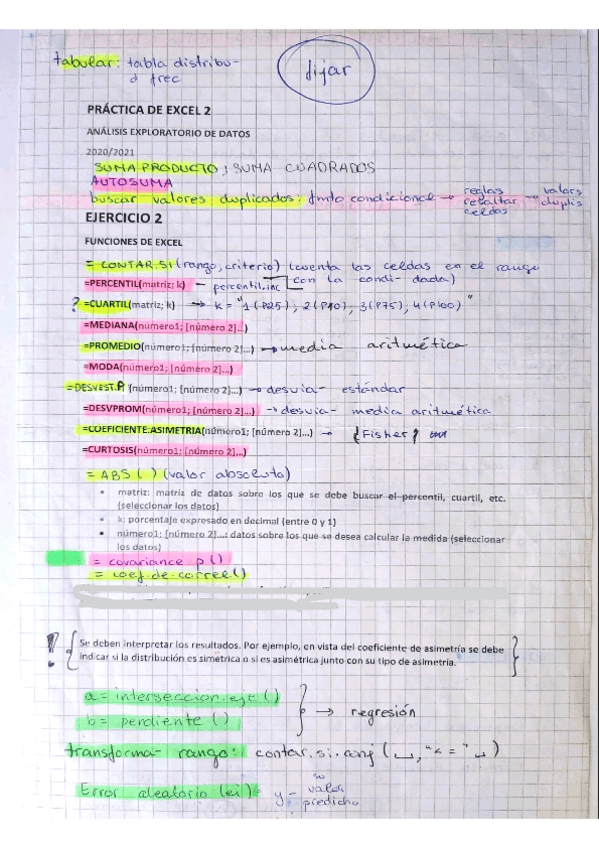 tabular: tabla distribu-
d frec
fijar
PRÁCTICA DE EXCEL 2
ANÁLISIS EXPLORATORIO DE DATOS
2020/2021
SUMAPRODUCTO; SUMA CUADRADOS
AUTOSUMA
buscar valores duplicados: fmto condicional → reglas resaltar celdas → valors duplis
EJERCICIO 2
FUNCIONES DE EXCEL
= CONTAR.SI (rango, criterio) (cuenta las celdas en el rango
con la condi- dada)
=PERCENTIL(matriz; k) – percentil.inc
? =CUARTIL(matriz; k) → k = "1(P25); 2(P40), 3(P75), 4(P100)"
=MEDIANA(número1; [número 2]...)
=PROMEDIO(número1; [número 2]...) → media aritmética
=MODA(número1; [número 2]...)
=DESVEST.P (número1; [número 2]...) → desvia- estándar
=DESVPROM(número1; [número 2]...) → desvia- media aritmética
=COEFICIENTE.ASIMETRIA(número1; [número 2]...) → {Fisher}
=CURTOSIS(número1; [número 2]...)
= ABS ( ) (valor absoluto)
• matriz: matriz de datos sobre los que se debe buscar el percentil, cuartil, etc.
(seleccionar los datos)
• k: porcentaje expresado en decimal (entre 0 y 1)
• número1; [número 2]...: datos sobre los que se desea calcular la medida (seleccionar
los datos)
= covariance.p ()
= coef.de.correl ()
! { Se deben interpretar los resultados. Por ejemplo, en vista del coeficiente de asimetría se debe
indicar si la distribución es simétrica o si es asimétrica junto con su tipo de asimetría. }
a = interseccion.eje ()
b = pendiente () } → regresión
transforma- rango: contar.si.conj (␣, "<=" ␣)
Error aleatorio (ei) = y – valor
predicho